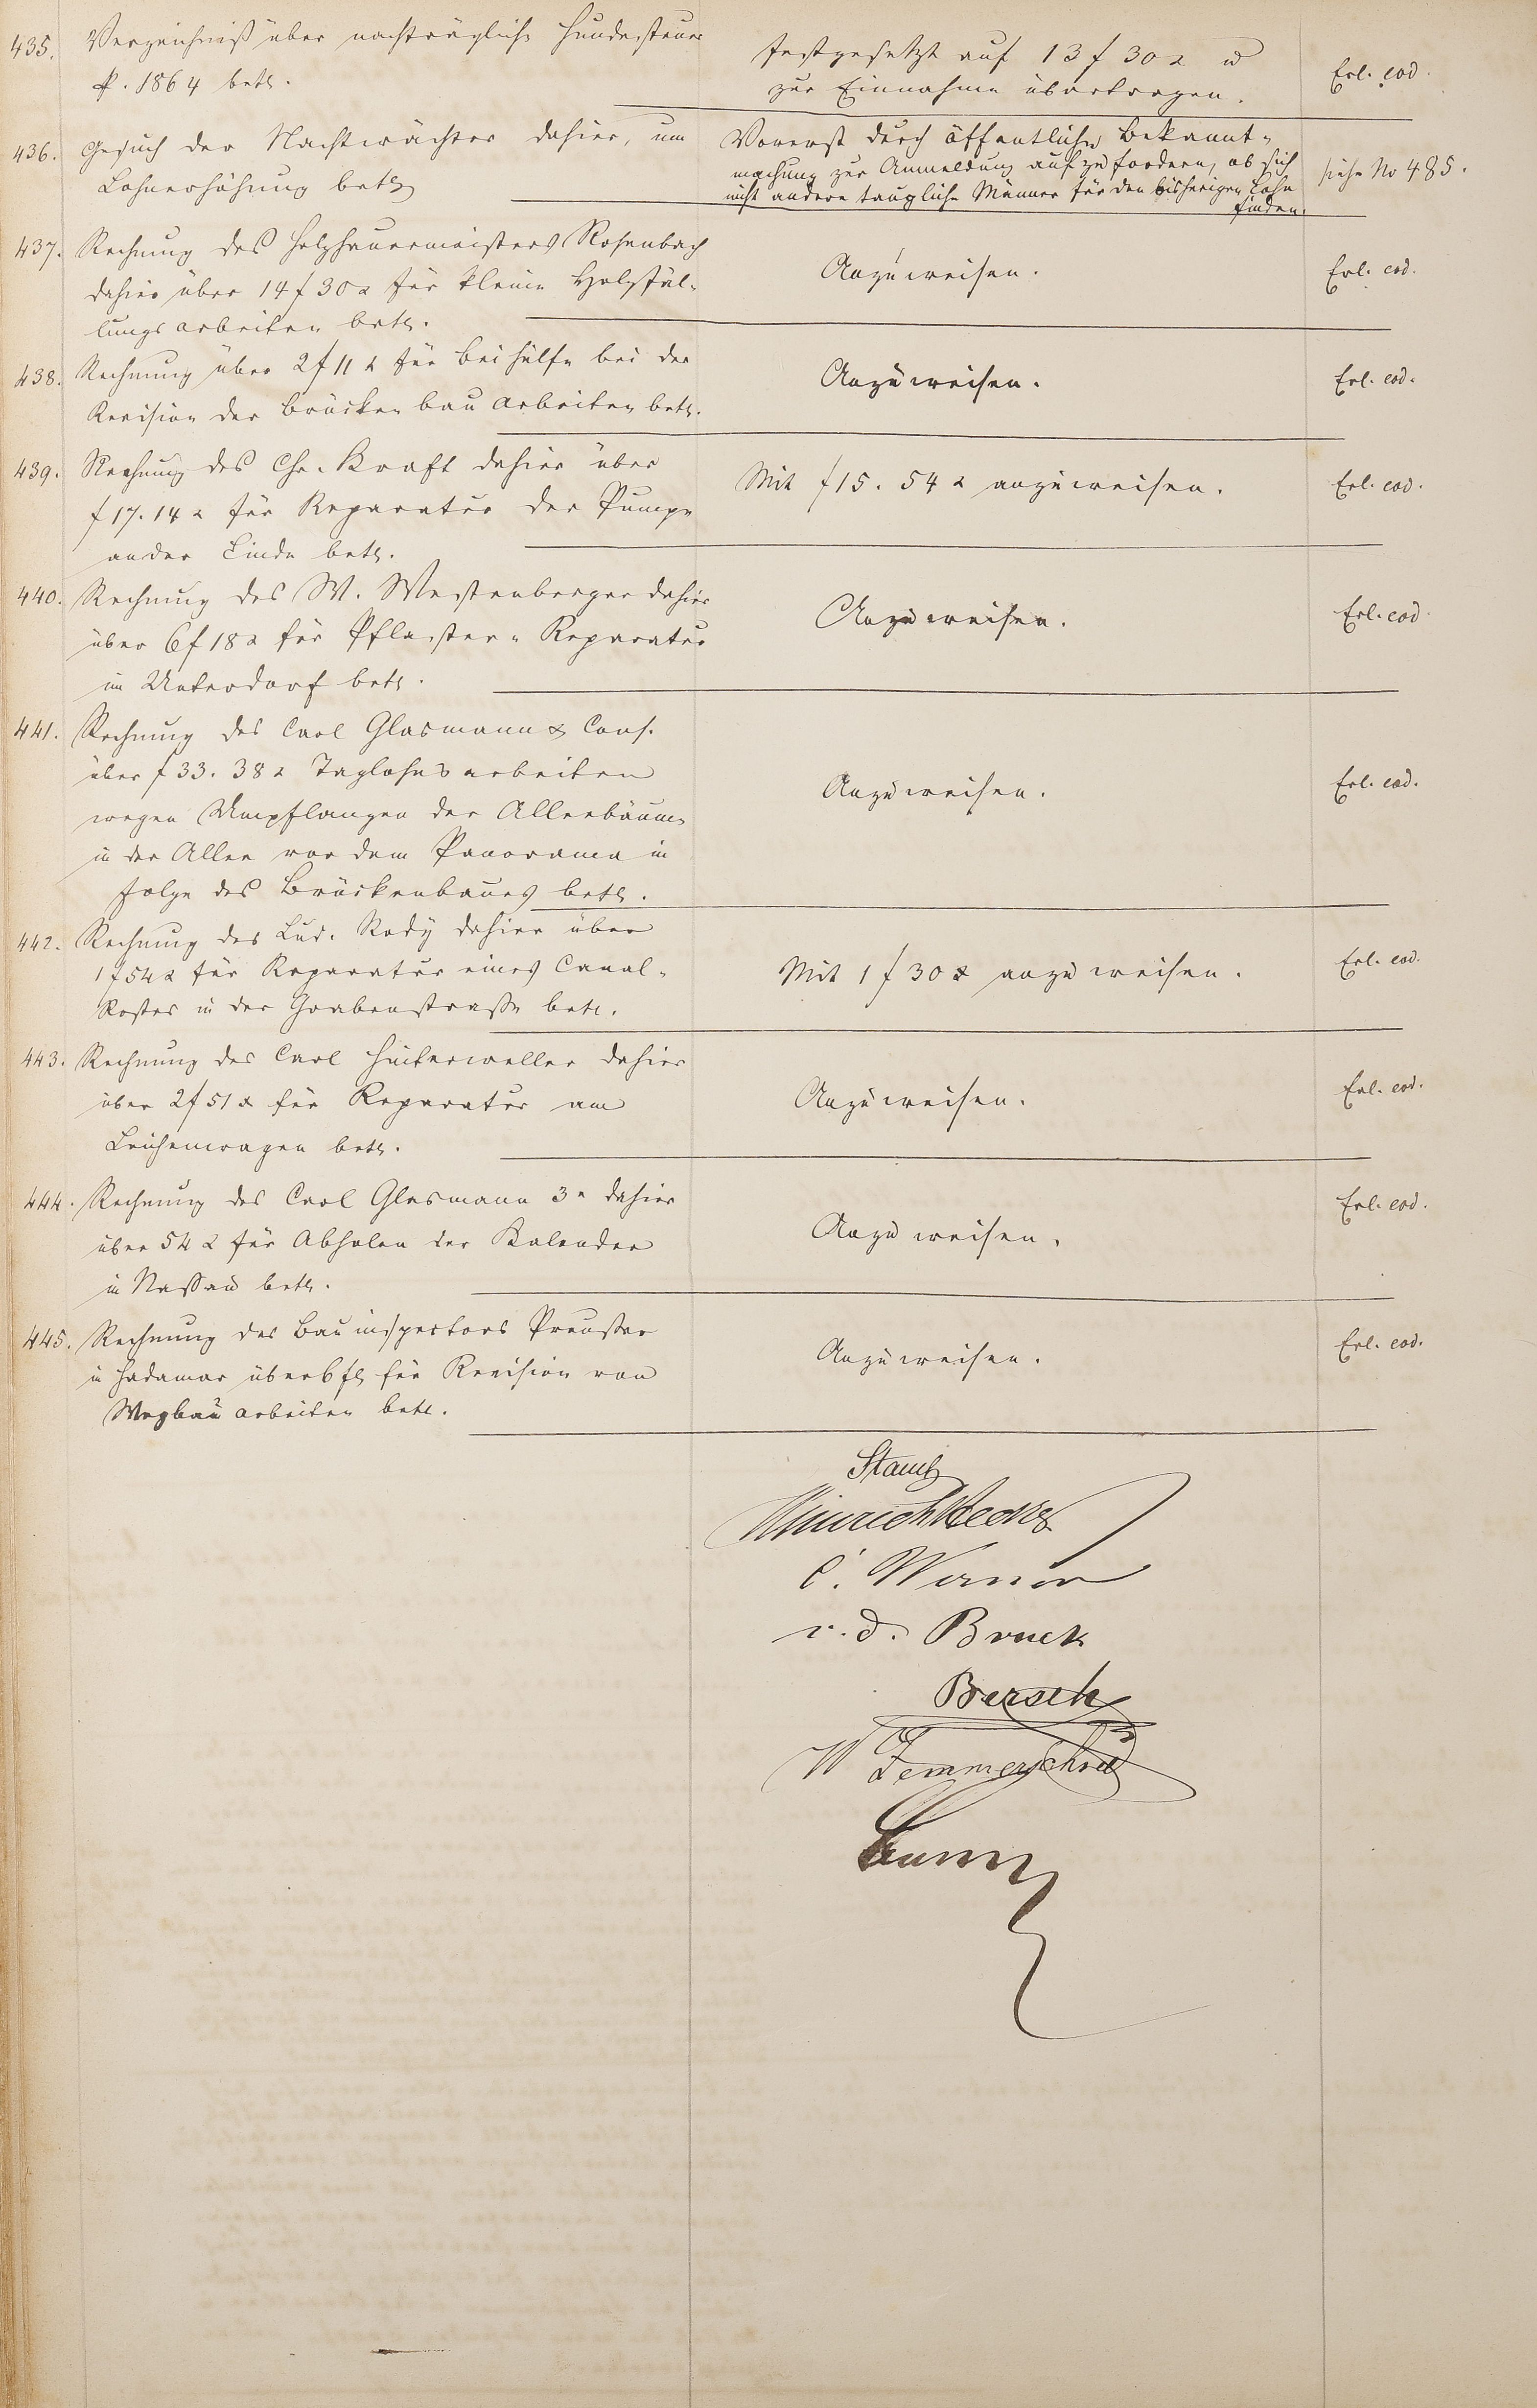 435. Verzeichniß über nachträgliche Hundesteuer
p. 1864 betr.
Festgesetzt auf 13 f 30 x u
zur Einnahme übertragen.
Erl. eod.
436. Gesuch der Nachtwächter dahier, um
Lohnerhöhung betr.
Vorerst durch öffentliche Bekannt-
machung zur Anmeldung aufzufordern, ob sich
nicht andere taugliche Männer für den bisherigen Lohn
finden.
siehe No 485.
437. Rechnung des Holzhauermeisters Rosenbach
dahier über 14 f 30 x für kleine Holzfäl-
lungsarbeiten betr.
Anzuweisen.
Erl. eod.
438. Rechnung über 2 f 11 x für Beihülfe bei der
Revision der Brückenbauarbeiten betr.
Anzuweisen.
Erl. eod.
439. Rechnung des Chr. Kraft dahier über
f 17. 14 x für Reparatur der Pumpe
an der Linde betr.
Mit f 15. 54 x anzuweisen.
Erl. eod.
440. Rechnung des W. Westenberger dahier
über 6 f 18 x für Pflaster-Reparatur
im Unterdorf betr.
Anzuweisen.
Erl. eod
441. Rechnung des Carl Glasmann & Cons.
über f 33. 38 x Taglohnsarbeiten
wegen Umpflanzen der Alleebäume
in der Allee vor dem Panorama in
Folge des Brückenbaues betr.
Anzuweisen.
Erl. eod.
442. Rechnung des Lud. Rody dahier über
1 f 54 x für Reparatur eines Canal-
Rostes in der Grabenstraße betr.
Mit 1 f 30 x anzuweisen.
Erl. eod.
443. Rechnung des Carl Hinterweller dahier
über 2 f 51 x für Reparatur am
Leichenwagen betr.
Anzuweisen.
Erl. eod.
444. Rechnung des Carl Glasmann 3r dahier
über 54 x für Abholen der Kalender
in Nassau betr.
Anzuweisen.
Erl. eod.
445. Rechnung des Bauinspectors Preußer
in Hadamar über 6 fl für Revision von
Wegbauarbeiten betr.
Anzuweisen.
Erl. eod.
Heinrich
C. Werner
v. d. Bruck
Bersch
W